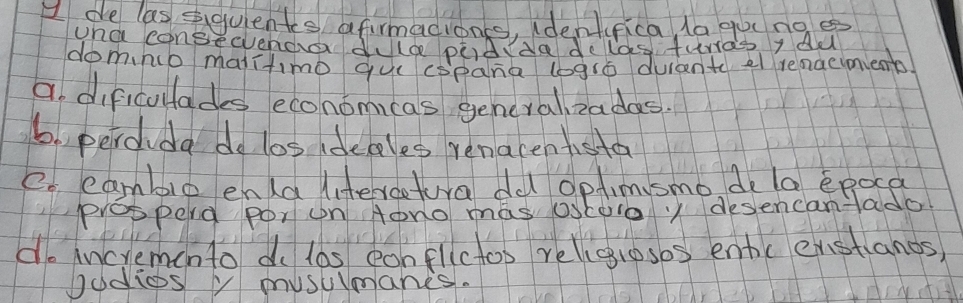 y de las siguientes afirmaciones, identifica, la que no es
una consecuencia de la perdida de las tierras y del
dominio maritimo que españa logró durante el renacimiento.
a. dificultades económicas generalizadas.
b. perduda de los ideales renacentista
c. cambio en la literatura del optimismo de la época
prospera por un tono más oscuro y desencantado.
d. incremento de los conflictos religiosos entre cristianos,
judios y musulmanes.